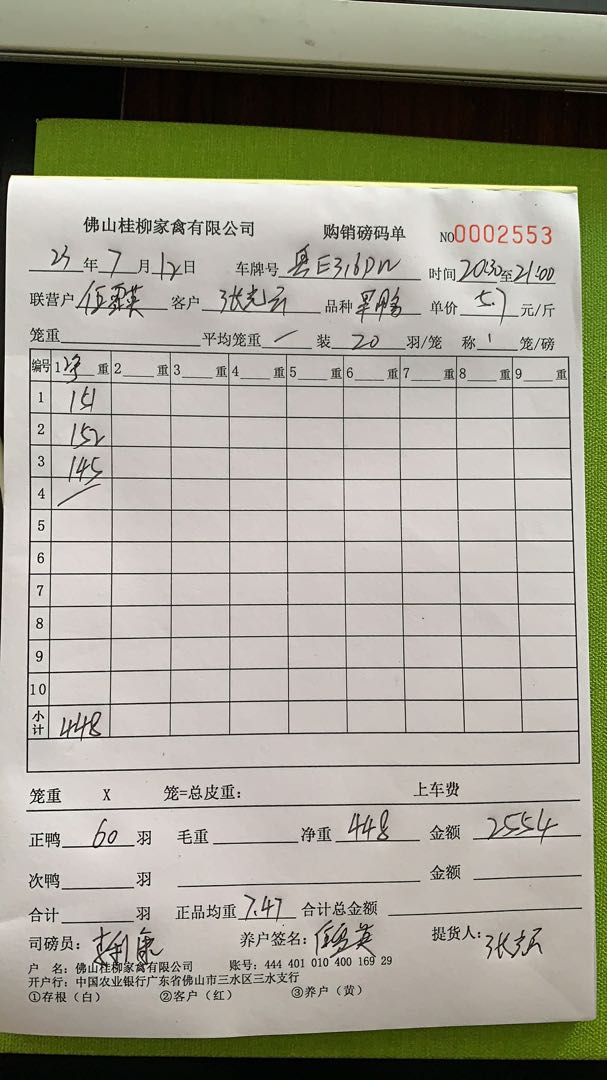 佛山桂柳家禽有限公司 购销磅码单 NO 0002553
23年7月12日 车牌号 粤E 时间20:30至21:00
联营户 客户 张 品种 鸭 单价5.7元/斤
笼重 平均笼重一装20羽/笼 称1笼/磅
编号 1净重 2 重 3 重 4 重 5 重 6 重 7 重 8 重 9 重
1 151
2 152
3 145
4
5
6
7
8
9
10
小计 448
笼重 X 笼=总皮重: 上车费
正鸭60羽 毛重 净重448 金额2554
次鸭 羽 金额
合计 羽 正品均重7.47 合计总金额
司磅员: 李 康 养户签名: 英 提货人: 张
户 名: 佛山桂柳家禽有限公司 账号: 444 401 010 400 169 29
开户行: 中国农业银行广东省佛山市三水区三水支行
①存根(白) ②客户(红) ③养户(黄)